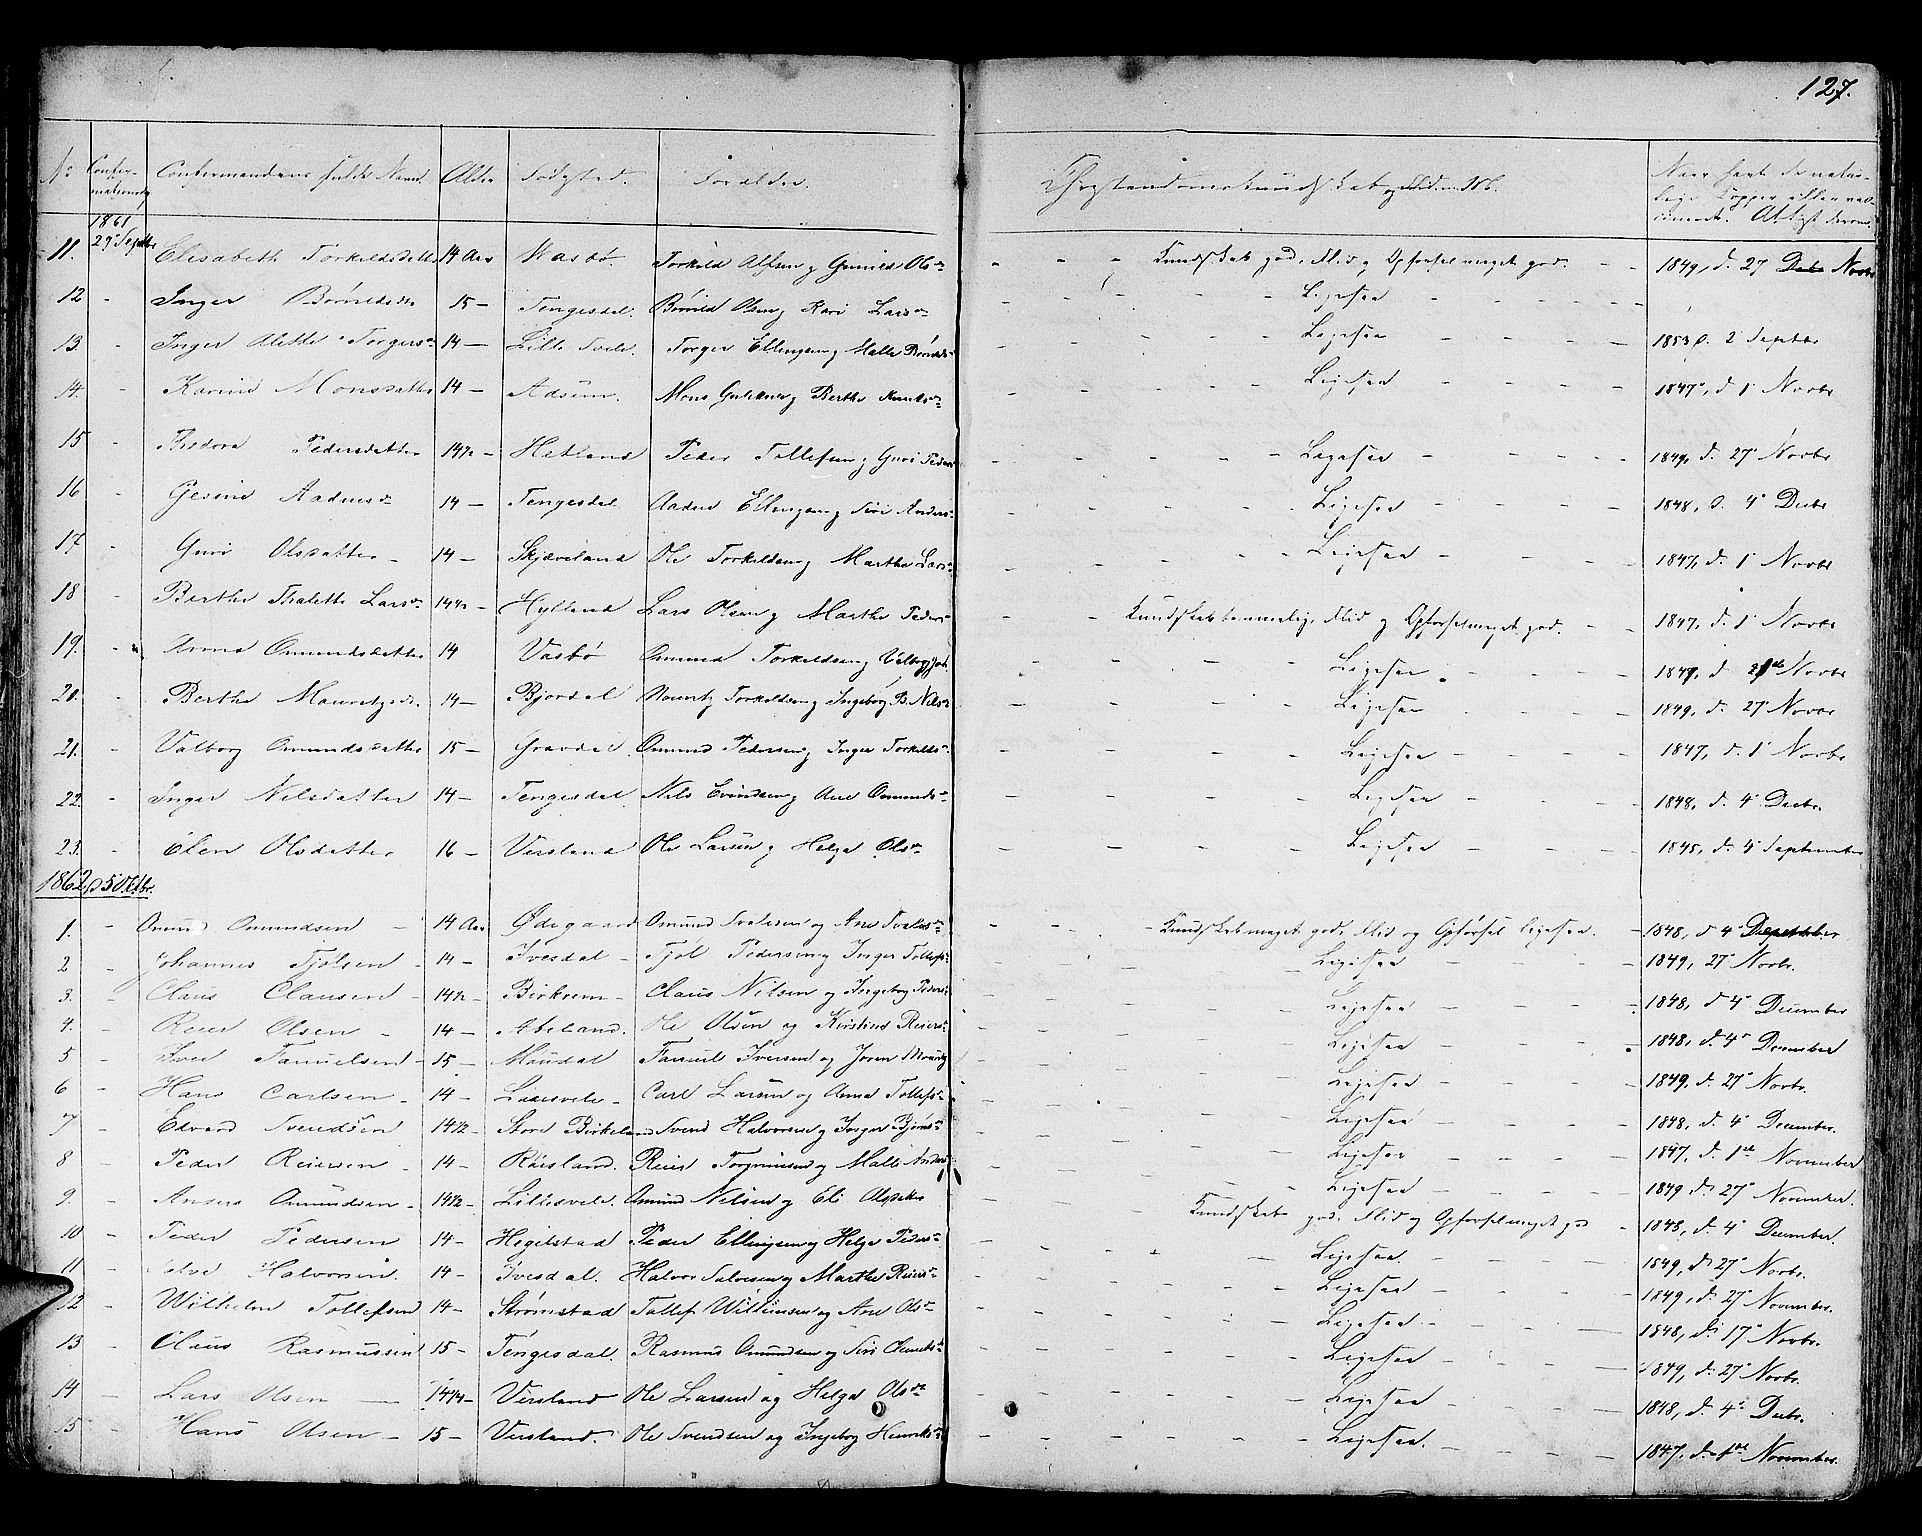 127.
No Confirmationsdag Confirmandens fulde Navn. Alder Fødested. Forældre. Christendomskundskab og Flid m. M. Naar havt de naturlige Kopper eller vaccineret. Attest derom.
1861
29 Septbr
11. Elisabeth Torkildsdatter 14 Aar Wasbø. Torkild Alfsen og Gunild Olsdr - - - Kundskab god, Flid og Opførsel meget god. - - 1849, d. 27 Decbr Novbr
12 - Inger Børildsdr 15 - Tengesdal. Børild Olsen og Kari Larsdr - - - - Ligesaa - - - -
13. - Inger Malthe Torgersdr 14 - Lille Svele. Torger Ellingsen og Malle Børildsdr - - - - Ligesaa - - - - 1853 d. 2 Septbr
14. - Karine Monsdatter 14 - Adsen. Mons Guldksen og Berthe Knutsdr - - - - Ligesaa - - - - 1847, d 1 Novbr
15 - Thedora Pedersdatter 14½ - Hetland Peder Tollefsen og Guri Peders - - - - Ligesaa - - - - 1849, d. 27 Novbr
16 - Gesine Aadnesdr 14 - Tengesdal Aadne Ellingsen og Siri Anders - - - - Ligesaa - - - - 1848, d. 4 Decbr
17 - Guri Olsdatter - 14 - Skjæveland Ole Torkildsen og Marthe Larsdr - - - - Ligesaa - - - 1847, d. 1 Novbr
18 - Berthe Thalette Larsdr 14½ - Hylland Lars Olsen og Marthe Peders - - Kundskab temmelig, Flid og Opførsel meget god. - - 1847, d. 1 Novbr
19. - Anna Omundsdatter 14 Vasbø Omund Torkildsen og Valborg Joh. - - - - Ligesaa - - - - 1849, d 27de Novbr
20. - Berthe Mauritzdr. 14 - Bjordal Mouritz Torkildsen og Ingeborg B. Nilsdr - - - - Ligesaa - - - 1849, d. 27 Novbr
21. - Valborg Omundsdatter 15 - Gravdal. Omund Pedersen og Inger Torkilds. - - - - Ligesaa - - - - 1847, d. 1 Novbr
22. - Inger Nilsdatter 14 - Tengesdal. Nils Evindsen og Ane Omunds - - - - Ligesaa - - - - 1848, d. 4 Decbr.
23. - Elen Olsdatter 16 - Versland Ole Larsen og Helga Olsdr - - - - Ligesaa - - - - 1845, d. 4 September
1862 d 5 Octbr.
1. - Omund Omundsen - 14 Aar Ødegaard Omund Svalesen og Ane Svalesdr - - - Kundskab meget god, Flid og Opførsel ligesaa. - 1848, d 4 December
2 - Johannes Tjølsen - 14 - Ivesdal - Tjøl Pedersen og Inger Tollefs - - - - Ligesaa - - - - 1849, 27 Novbr.
3. - Claus Clausen - 14½ - Birkrem - Claus Nilsen og Ingeborg Peders - - - - Ligesaa - - - - 1848, d 4 December
4. - Reier Olsen - 14 - Abeland. Ole Olsen og Kirstine Reiers - - - - Ligesaa - - - 1848, d. 4 December
5 - Iver Samuelsen - 15 - Maudal Samuel Iversen og Joren Mouritz - - - - Ligesaa - - - - 1849, d. 27 Novbr.
6 - Hans Carlsen - 14 - Ladesvele - Carl Larsen og Anna Tollefs - - - - Ligesaa - - - - 1848, d. 4 December.
7 - Edvard Svendsen 14½ - Store Birkeland Svend Halvorsen og Inger Bjørns - - - - Ligesaa - - - - 1847, d. 1ste November
8 - Peder Reiersen - 14 - Røisland. Reier Torgrimsen og Malle Anders - - - - Ligesaa - - - - 1849 d. 27 November.
9 - Anders Omundsen - 14½ - Lillesvele. Omund Nilsen og Eli Olsdatter - - Kundskab god, Flid og Opførsel meget god - 1848, d. 4 December.
10 - Peder Pedersen 14 - Hegelstad Peder Ellingsen og Helge Peders - - - - Ligesaa. - - - - 1849, d. 27 Novbr.
11 - Salve Halvorsen. 14 - Ivesdal. Halvor Salvesen og Marthe Reiers - - - - Ligesaa - - - - 1849, d. 27 November.
12 - Wilhelm Tollefsen 14 - Strømstad Tollef Willumsen og Ane Olsdr - - - - Ligesaa. - - - - 1848, d. 17 Novbr.
13 - Claus Rasmussen 15 - Tengesdal. Rasmus Omundsen og Siri Clemets - - - - Ligesaa - - - - 1849, d. 27 Novbr.
14 - Lars Olsen - 14¼ - Versland Ole Larsen og Helga Olsdr - - - - Ligesaa - - - - 1848, d. 4 Decbr.
15 - Hans Olsen - 15 - Versland. Ole Svendsen og Ingeborg Henriks - - - - Ligesaa. - - - - 1847, d. 1ste November.